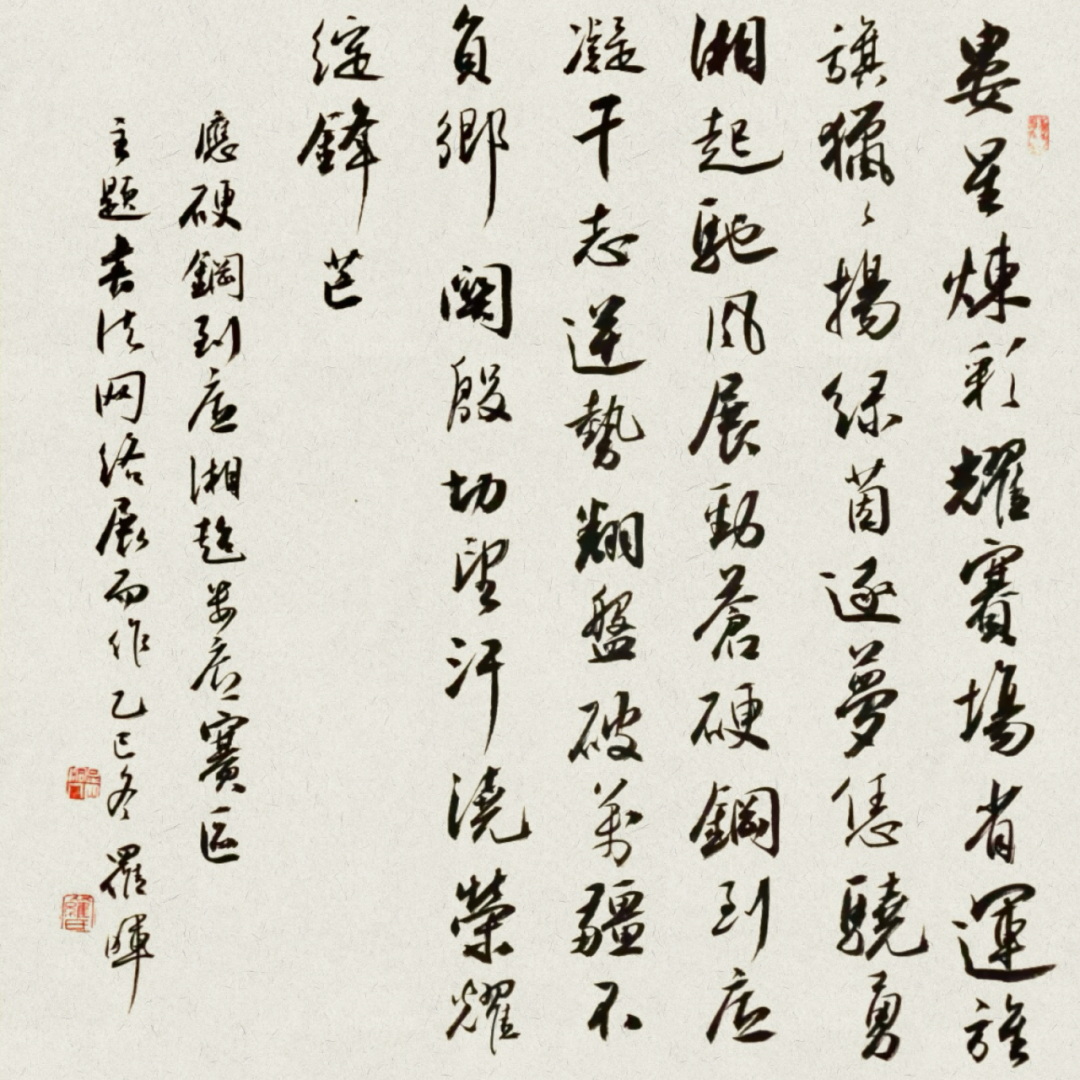 婁星煉彩耀賽場省運旌
旗獵々揚綠茵逐夢憑驍勇
湘起馳風展勁蒼硬鋼到底
凝干志逆勢翻盤破萬疆不
負鄉關殷切望汗澆榮耀
綻鋒芒
應硬鋼到底湘超娄底賽區
主題书法网络展而作乙巳冬羅暉